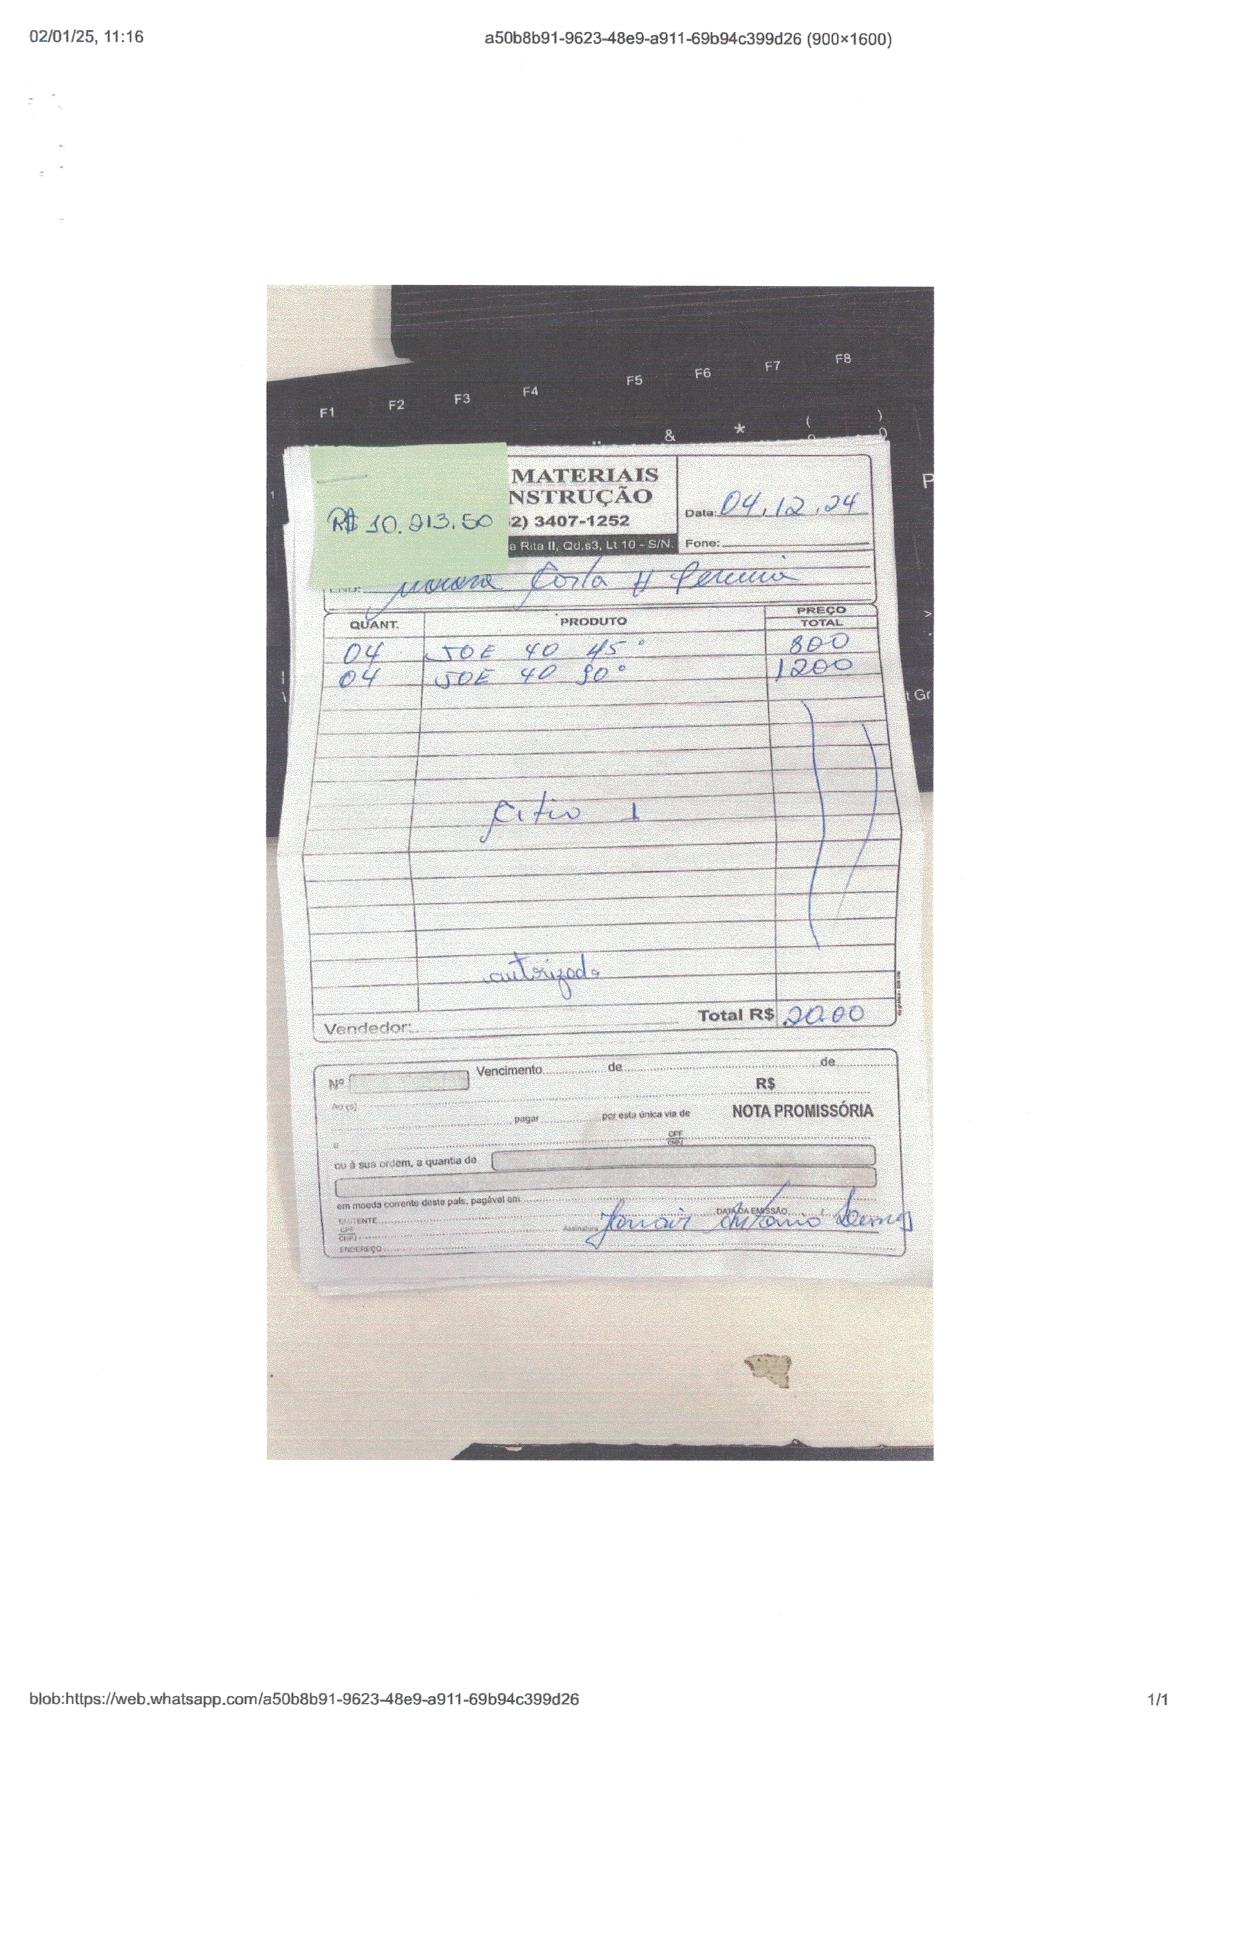 02/01/25, 11:16
a50b8b91-9623-48e9-a911-69b94c399d26 (900×1600)
F1 F2 F3 F4 F5 F6 F7 F8
& * ( )
MATERIAIS
NSTRUÇÃO
2) 3407-1252
a Rita II, Qd.63, Lt 10 - S/N.
Data: 04.12.24
Fone:
R$ 10.213.50
Costa # Pereira
QUANT. PRODUTO PREÇO TOTAL
04 JOE 40 45° 800
04 JOE 40 90° 1200
1
autorizado
Vendedor: Total R$ 2000
Nº Vencimento de de
R$
Ao(s)
pagar por esta única via de NOTA PROMISSÓRIA
a CPF CNPJ
ou à sua ordem, a quantia de
em moeda corrente deste país, pagável em
EMITENTE DATA DA EMISSÃO
CPF CNPJ Assinatura Antonio
ENDEREÇO
blob:https://web.whatsapp.com/a50b8b91-9623-48e9-a911-69b94c399d26
1/1